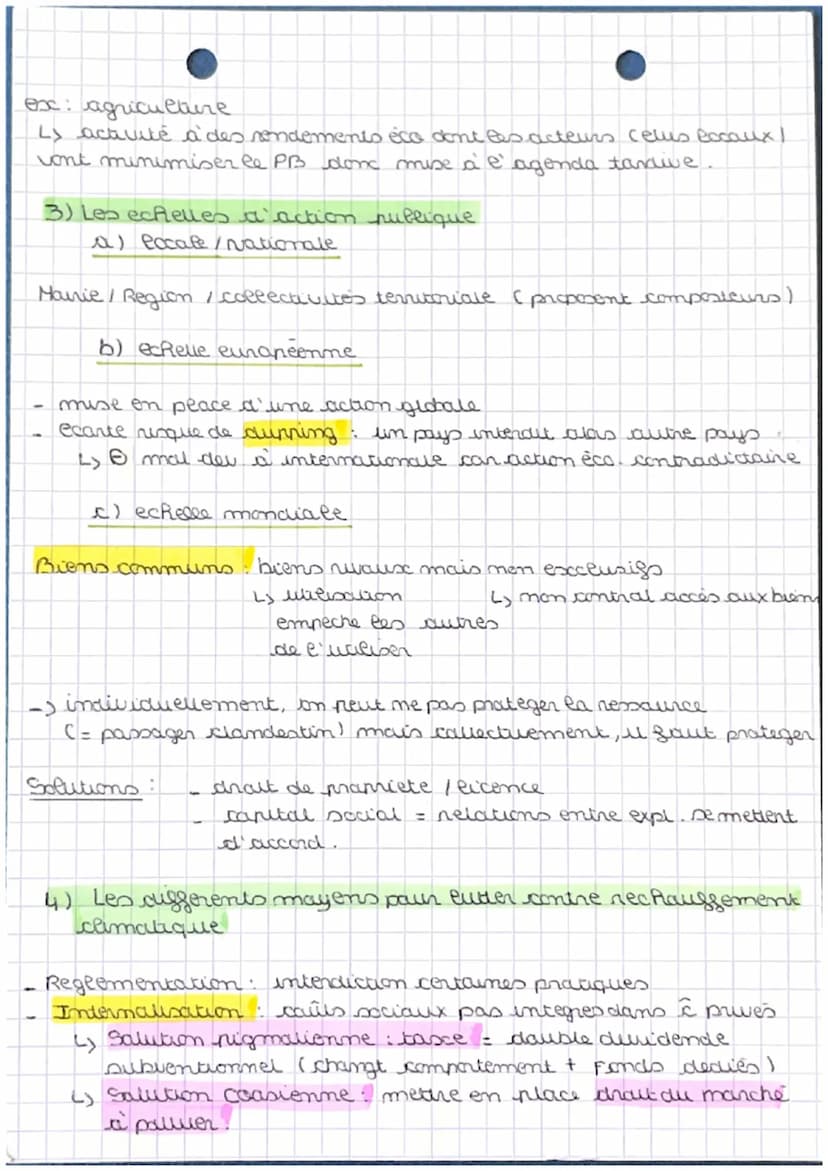 ex : agriculture
↳ activité à des rendements éco dont les acteurs (elus locaux)
vont minimiser le PB donc mise à l'agenda tardive.
3) Les echelles d'action publique
a) locale / nationale
Mairie / Region / collectivités territoriale (proposent composteurs)
b) echelle européenne
- mise en place d'une action globale
- ecarte risque de dumping : un pays interdit alors autre pays
↳ ⊖ mal dev à internationale car action éco. contradictoire
c) echelle mondiale
Biens communs : biens rivaux mais non exclusifs
↳ utilisation ↳ non control accès aux biens
empeche les autres
de l'utiliser
-> individuellement, on peut ne pas proteger la ressource
(= passager clandestin) mais collectivement, il faut proteger
Solutions : - droit de propriete / licence
- capital social = relations entre expl. se mettent
d'accord.
4) Les differents moyens pour lutter contre rechauffement
climatique
- Reglementation : interdiction certaines pratiques
- Internalisation : coûts sociaux pas integres dans ĉ privés
↳ Solution pigmalienne : taxe = double dividende
subventionnel (changt comportement + Fonds dédiés)
↳ Solution coasienne : mettre en place droit du marché
à polluer !